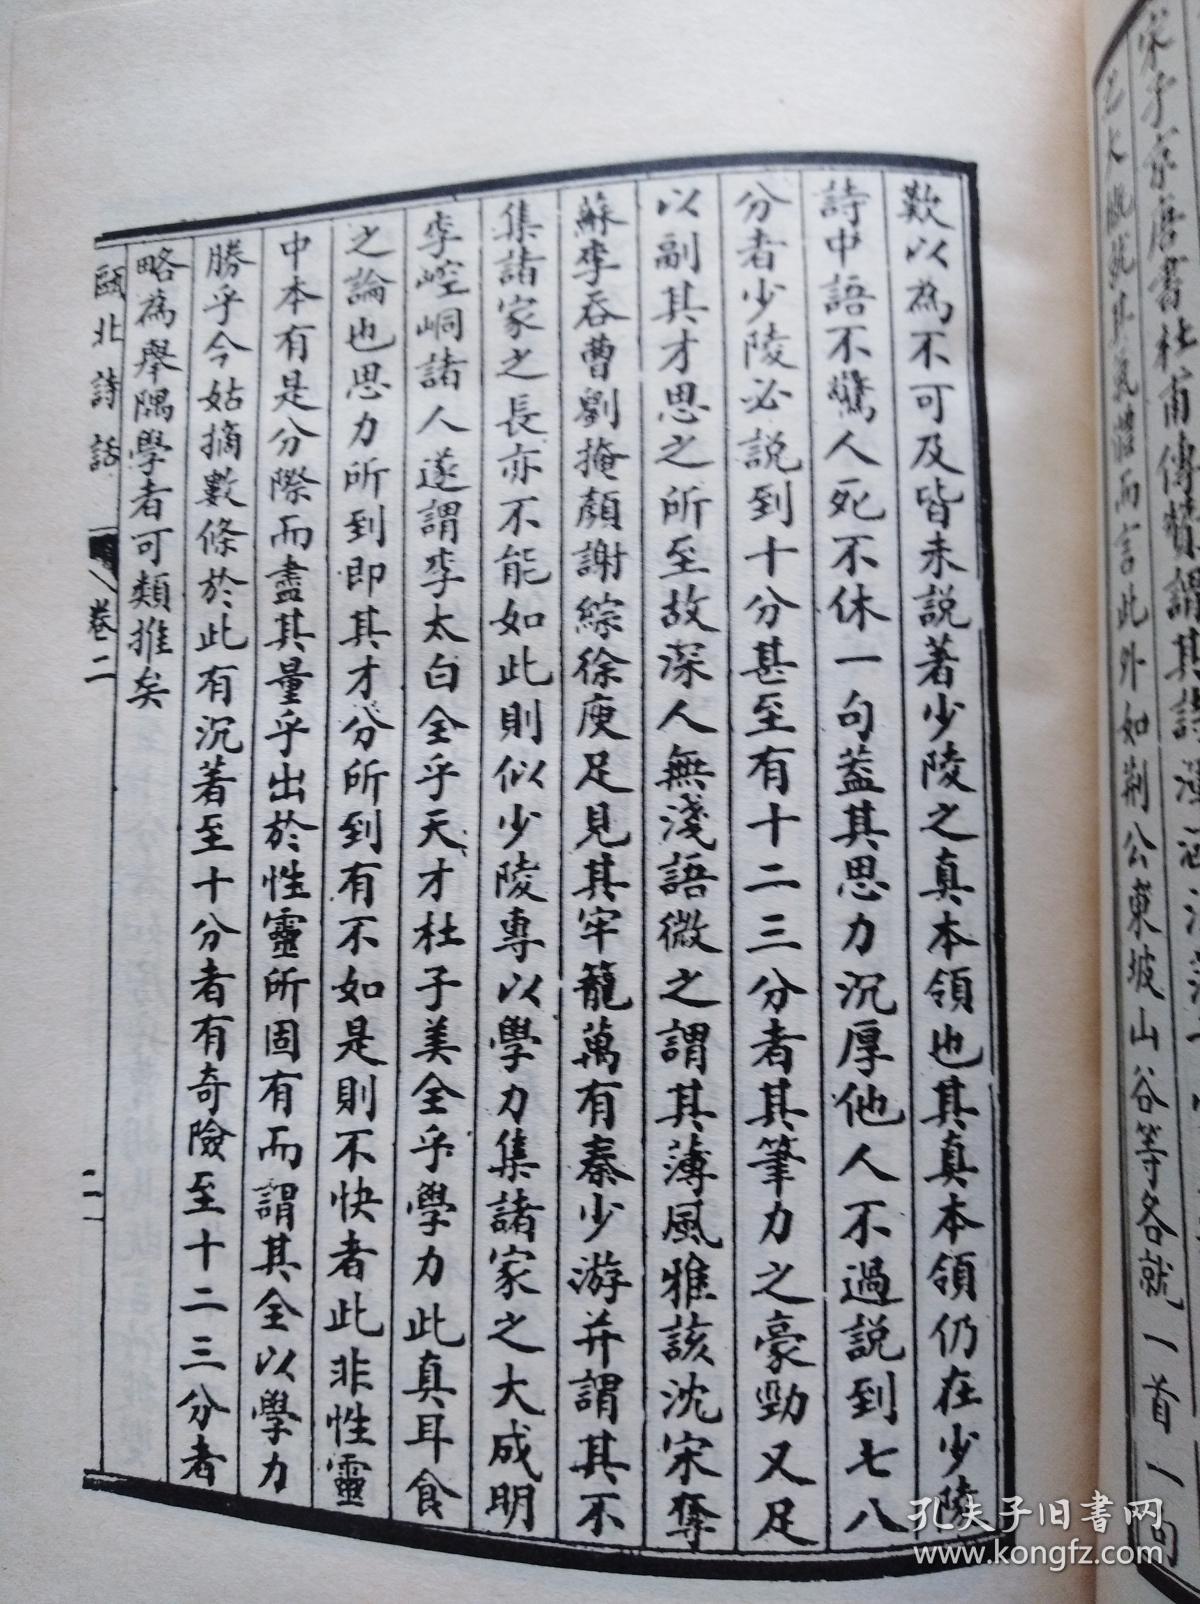 宋子京唐書杜甫傳贊謂其詩渾涵汪茫千
芒大概就其氣體而言此外如荆公東坡山谷等各就一首一句
歎以為不可及皆未説著少陵之真本領也其真本領仍在少陵
詩中語不驚人死不休一句葢其思力沉厚他人不過説到七八
分者少陵必説到十分甚至有十二三分者其筆力之豪勁又足
以副其才思之所至故深人無淺語微之謂其薄風雅該沈宋奪
蘇李吞曹劉掩顔謝綜徐庾足見其牢籠萬有秦少游并謂其不
集諸家之長亦不能如此則似少陵專以學力集諸家之大成明
李崆峒諸人遂謂李太白全乎天才杜子美全乎學力此真耳食
之論也思力所到即其才分所到有不如是則不快者此非性靈
中本有是分際而盡其量乎出於性靈所固有而謂其全以學力
勝乎今姑摘數條於此有沉著至十分者有奇險至十二三分者
略為舉隅學者可類推矣
甌北詩話 卷二 二
孔夫子旧书网
www.kongfz.com